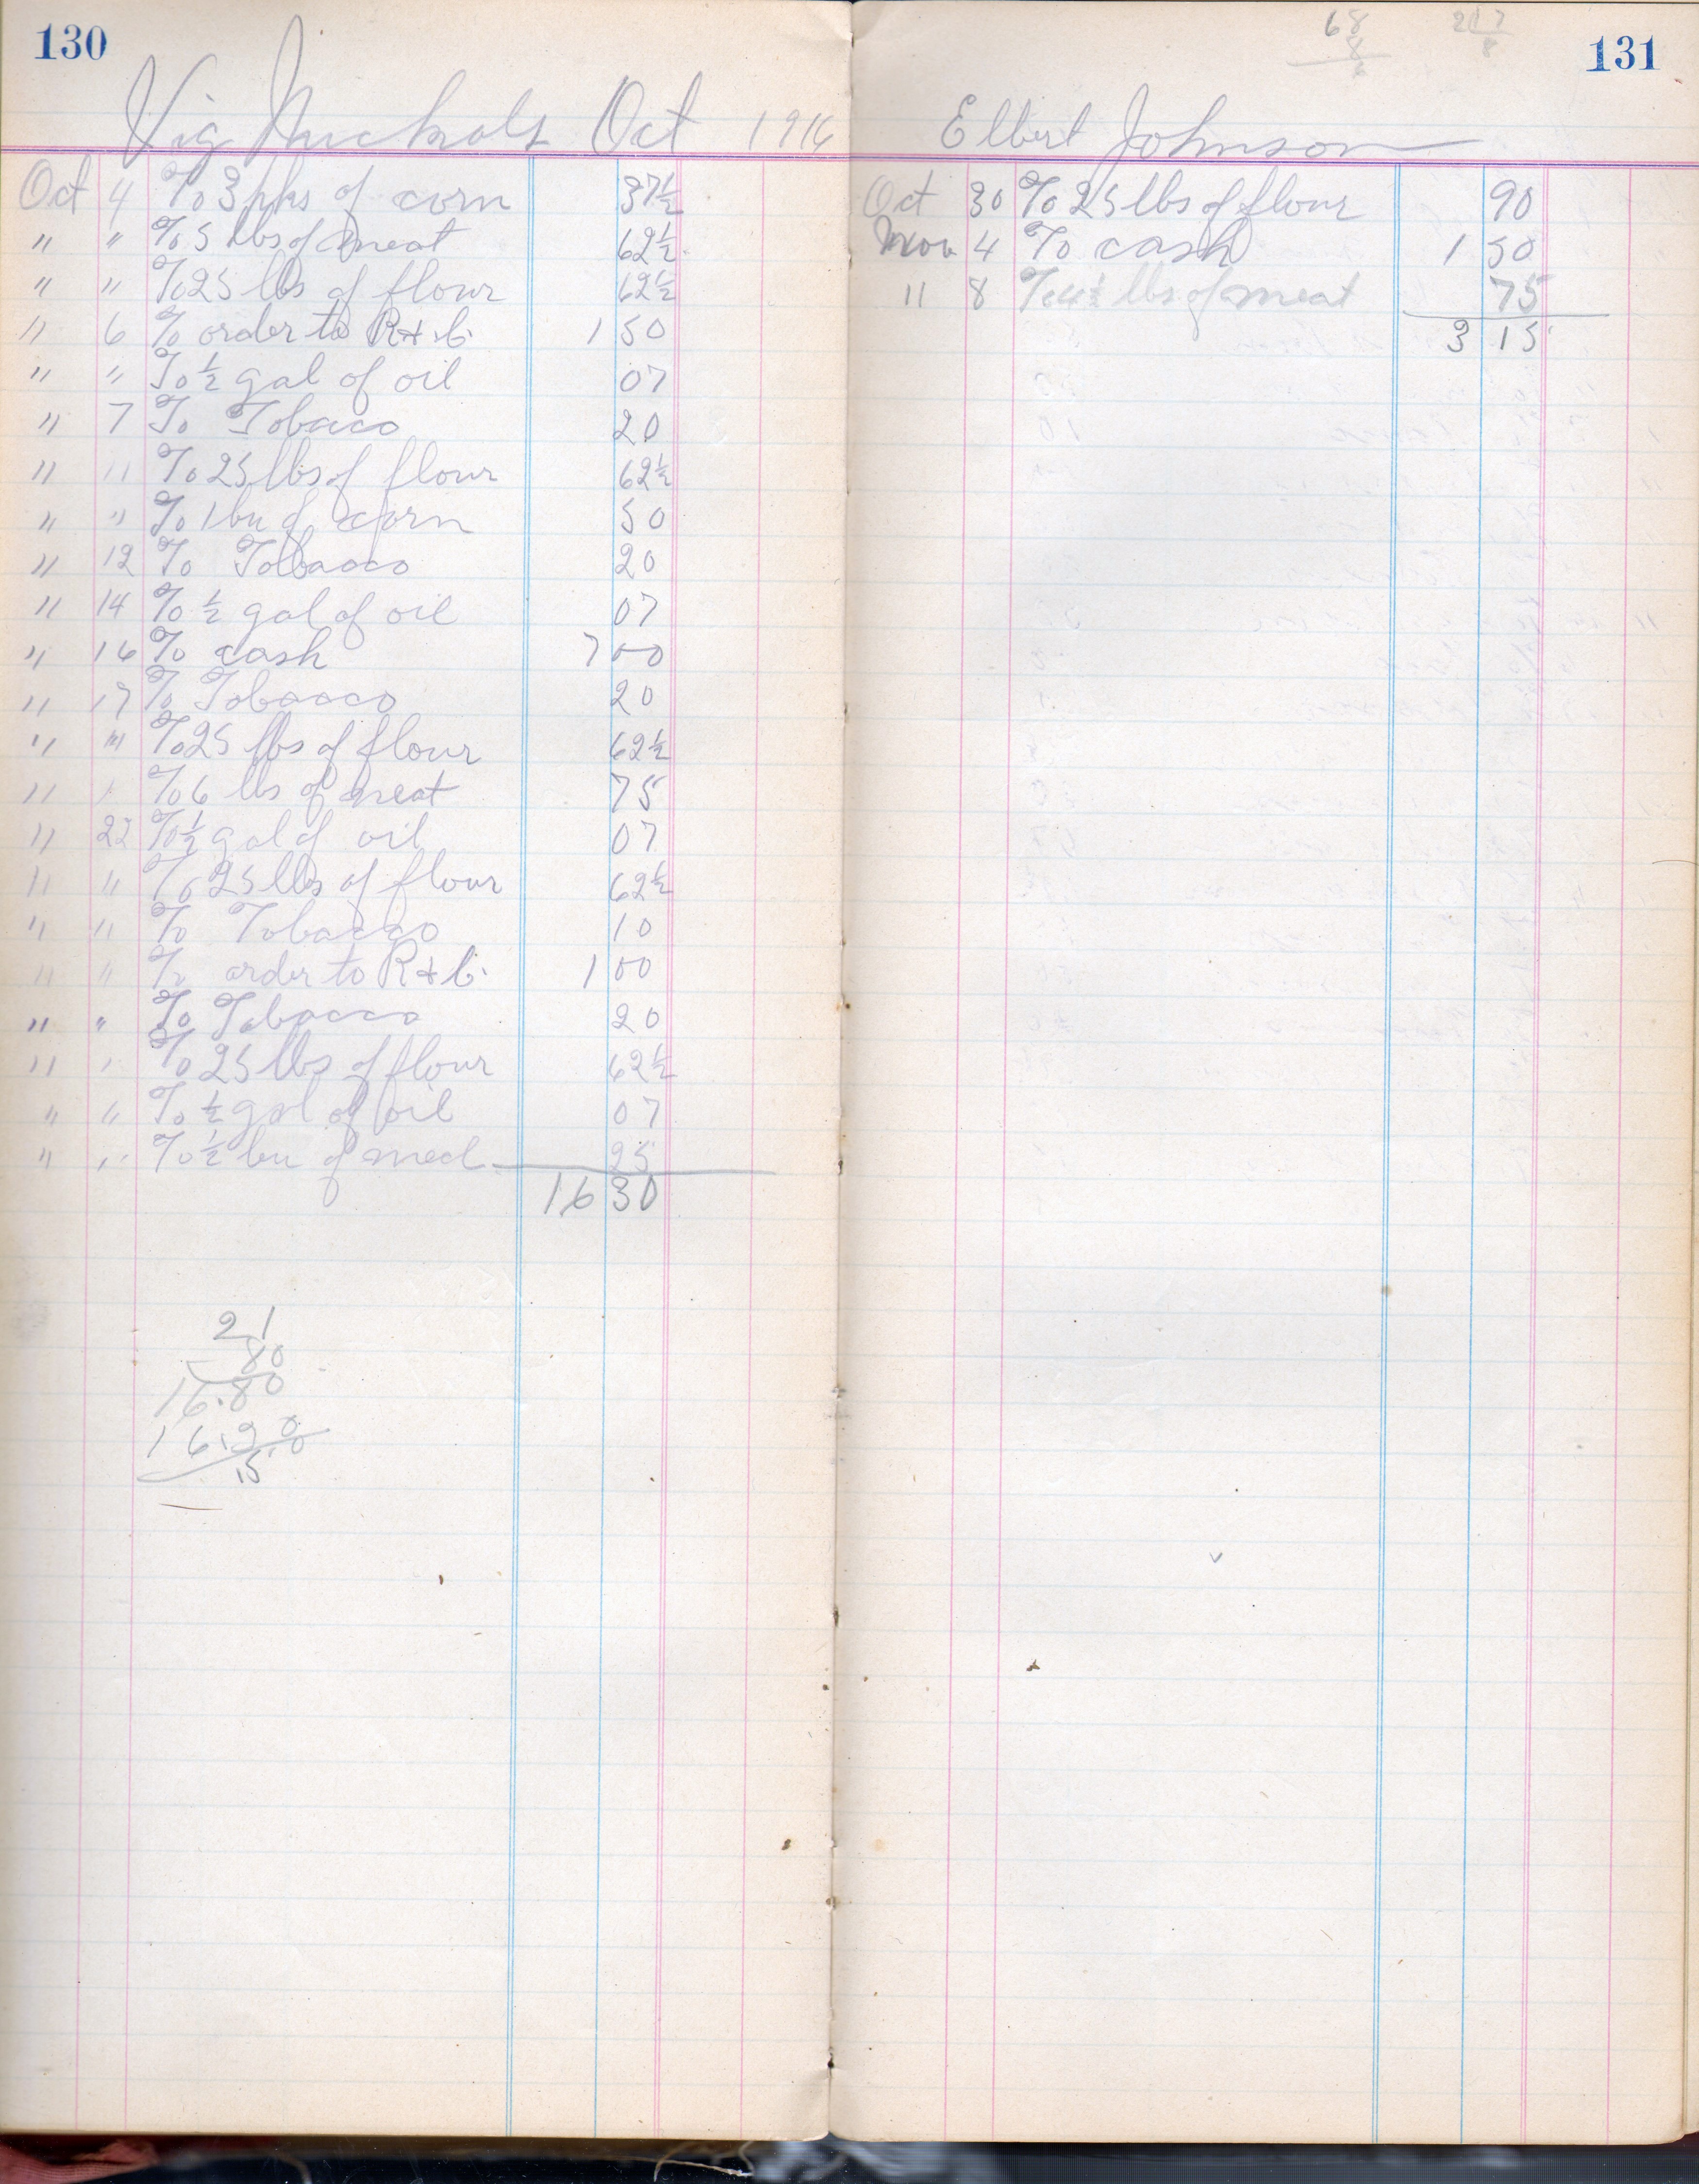 130
Vig Nuckols Oct 1916
Oct 4 To 3 pks of corn 37½
" " To 5 lbs of meat 62½
" " To 25 lbs of flour 62½
" 6 To order to R & C. 1 50
" " To ½ gal of oil 07
" 7 To Tobaco 20
" 11 To 25 lbs of flour 62½
" " To 1 bu of corn 50
" 12 To Tobacco 20
" 14 To ½ gal of oil 07
" 16 To cash 7 00
" 17 To Tobacco 20
" " To 25 lbs of flour 62½
" " To 6 lbs of meat 75
" 22 To ½ gal of oil 07
" " To 25 lbs of flour 62½
" " To Tobacco 10
" " To order to R & C. 1 00
" " To Tobacco 20
" " To 25 lbs of flour 62½
" " To ½ gal of oil 07
" " To ½ bu of meal 25
16 30
21
80
16.80
16.30
.50
131
68
8
Elbert Johnson
Oct 30 To 25 lbs of flour 90
Nov 4 To cash 1 50
" 8 To 4½ lbs of meat 75
3 15